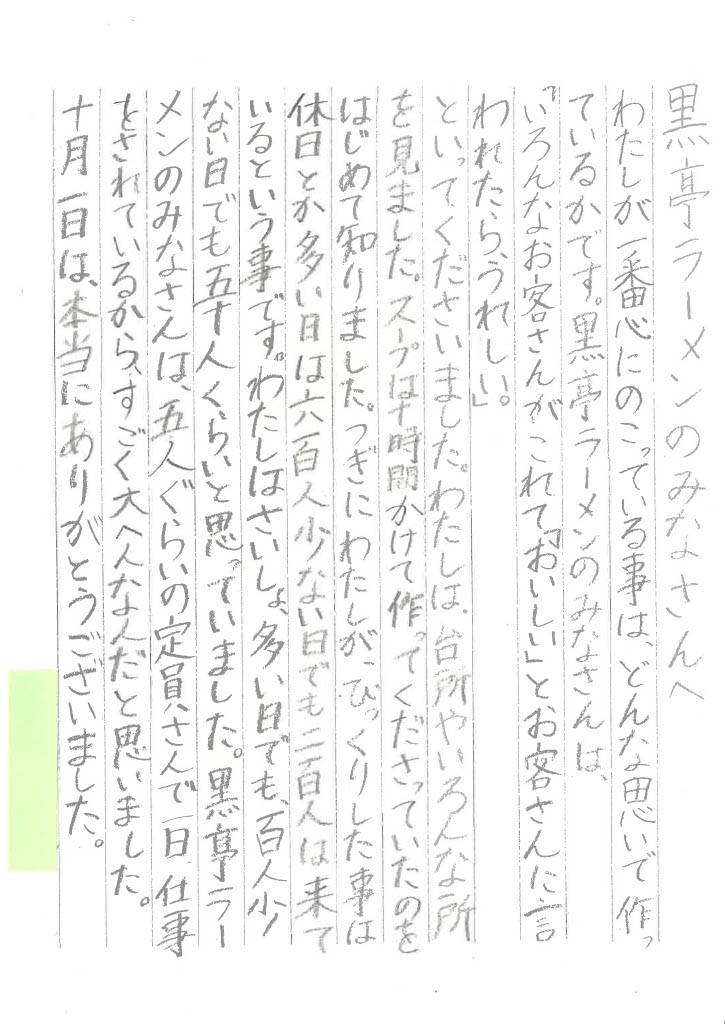 黒亭ラーメンのみなさんへ
わたしが一番心にのこっている事は、どんな思いで作っ
ているかです。黒亭ラーメンのみなさんは、
「いろんなお客さんがこれて「おいしい」とお客さんに言
われたら、うれしい」。
といってくださいました。わたしは、台所やいろんな所
を見ました。スープは十時間かけて作ってくださっていたのを
はじめて知りました。つぎにわたしが、びっくりした事は
休日とか多い日は六百人少ない日でも二百人は来て
いるという事です。わたしはさいしょ、多い日でも、百人少
ない日でも五十人くらいと思っていました。黒亭ラー
メンのみなさんは、五人ぐらいの定員さんで一日仕事
をされているから、すごく大へんなんだと思いました。
十月一日は、本当にありがとうございました。